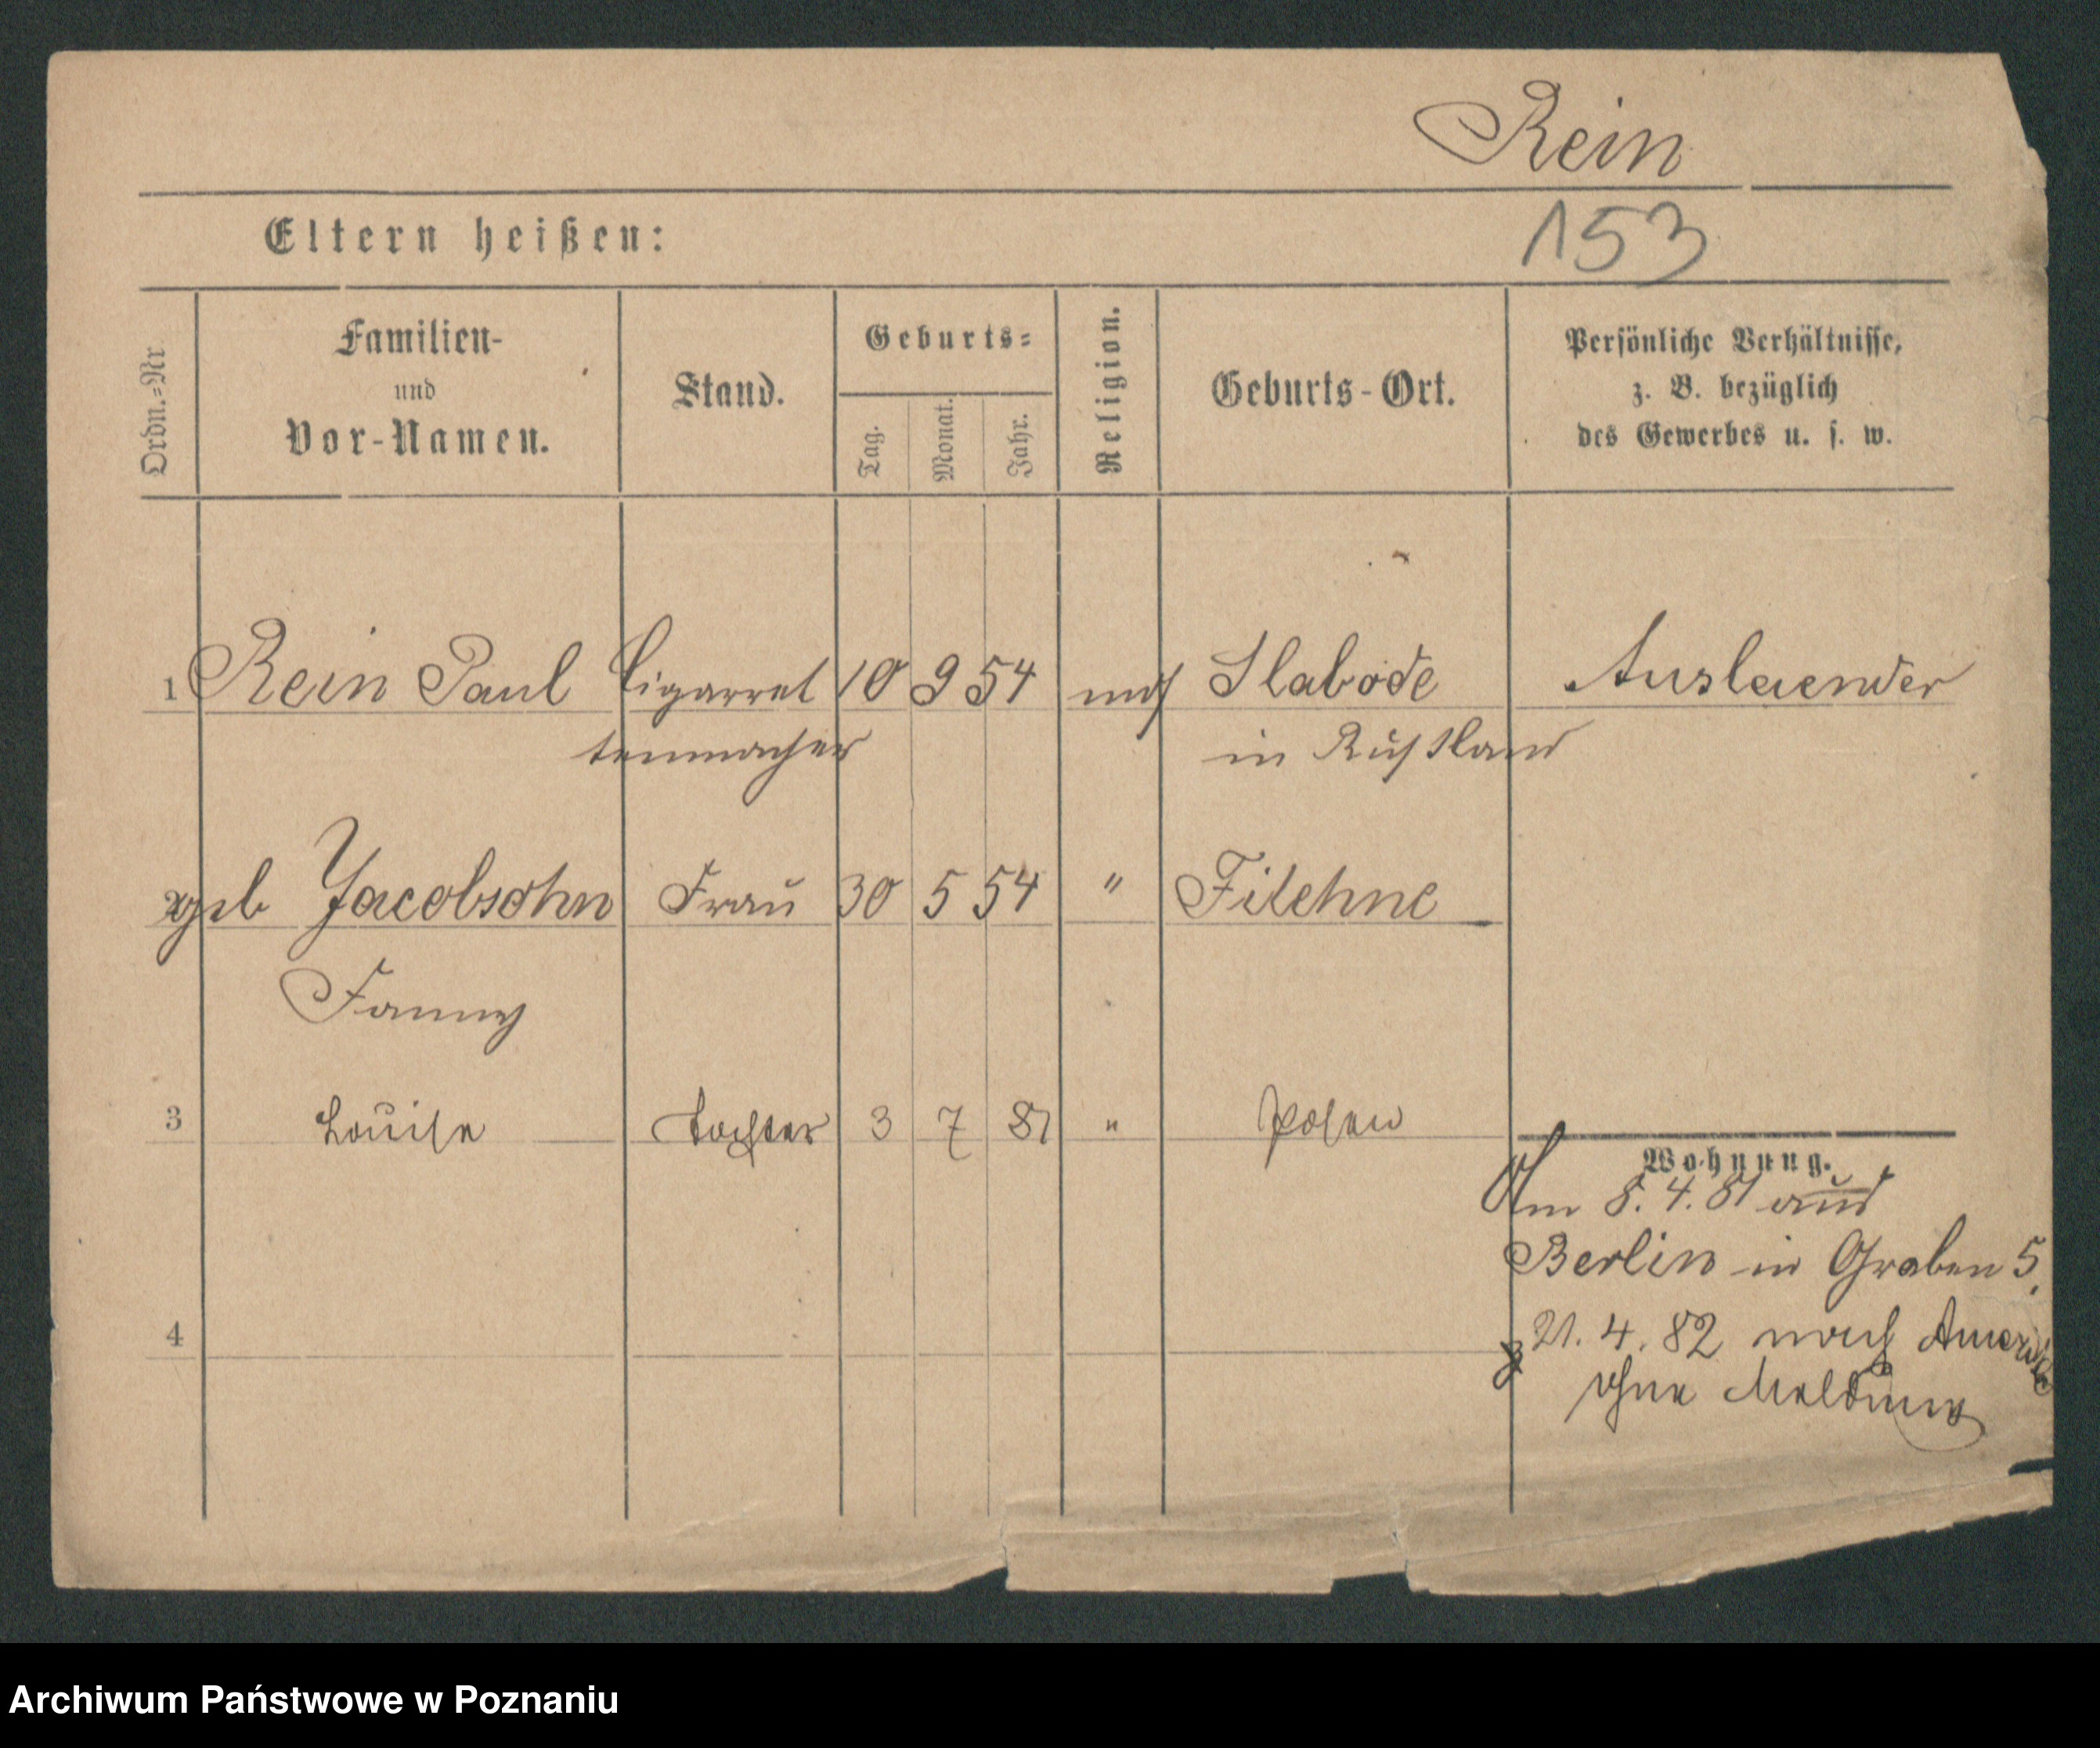 Rein
153
Eltern heißen:
Ordn.-Nr
Familien-
und
Vor-Namen.
Stand.
Geburts-
Tag.
Monat.
Jahr.
Religion.
Geburts-Ort.
Persönliche Verhältnisse,
z. B. bezüglich
des Gewerbes u. s. w.
1 Rein Paul Cigarret 10 9 54 mos Slabode Auslaender
tenmacher in Rußland
geb Jacobsohn Frau 30 5 54 " Filehne
Fanny
3 Louise Tochter 3 7 81 " Posen
Wohnung.
Am 8. 4. 81 aus
Berlin in Graben 5.
21. 4. 82 nach Amerika
4
ohne Meldung
Archiwum Państwowe w Poznaniu